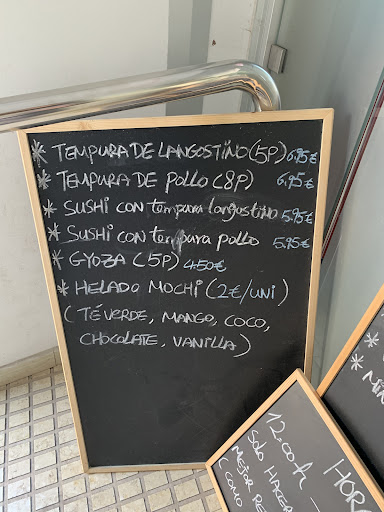 * TEMPURA DE LANGOSTINO (5P) 6.95€
* TEMPURA DE POLLO (8P) 6.95€
* SUSHI CON tempura langostino 5.95€
* SUSHI CON tempura pollo 5.95€
* GYOZA (5P) 4.50€
* HELADO MOCHI (2€/UNI)
(TÉ VERDE, MANGO, COCO,
CHOCOLATE, VANILLA)
HOR
12:00h -
SOLO HACER
MEJOR RE
(COMO